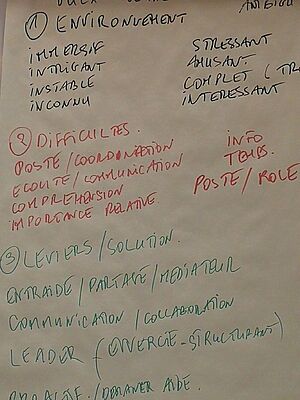 ① ENVIRONNEMENT
IMMERSIF STRESSANT
INTRIGANT AMUSANT
INSTABLE COMPLET (
INCONNU INTERESSANT
② DIFFICULTES.
POSTE/COORDINATION INFO
ECOUTE/COMMUNICATION TEMPS.
COMPREHENSION POSTE/ROLE
IMPORTANCE RELATIVE.
③ LEVIERS/SOLUTION.
ENTRAIDE/PARTAGE/MEDIATEUR
COMMUNICATION/COLLABORATION
LEADER ( - STRUCTURANT)
AIDE.